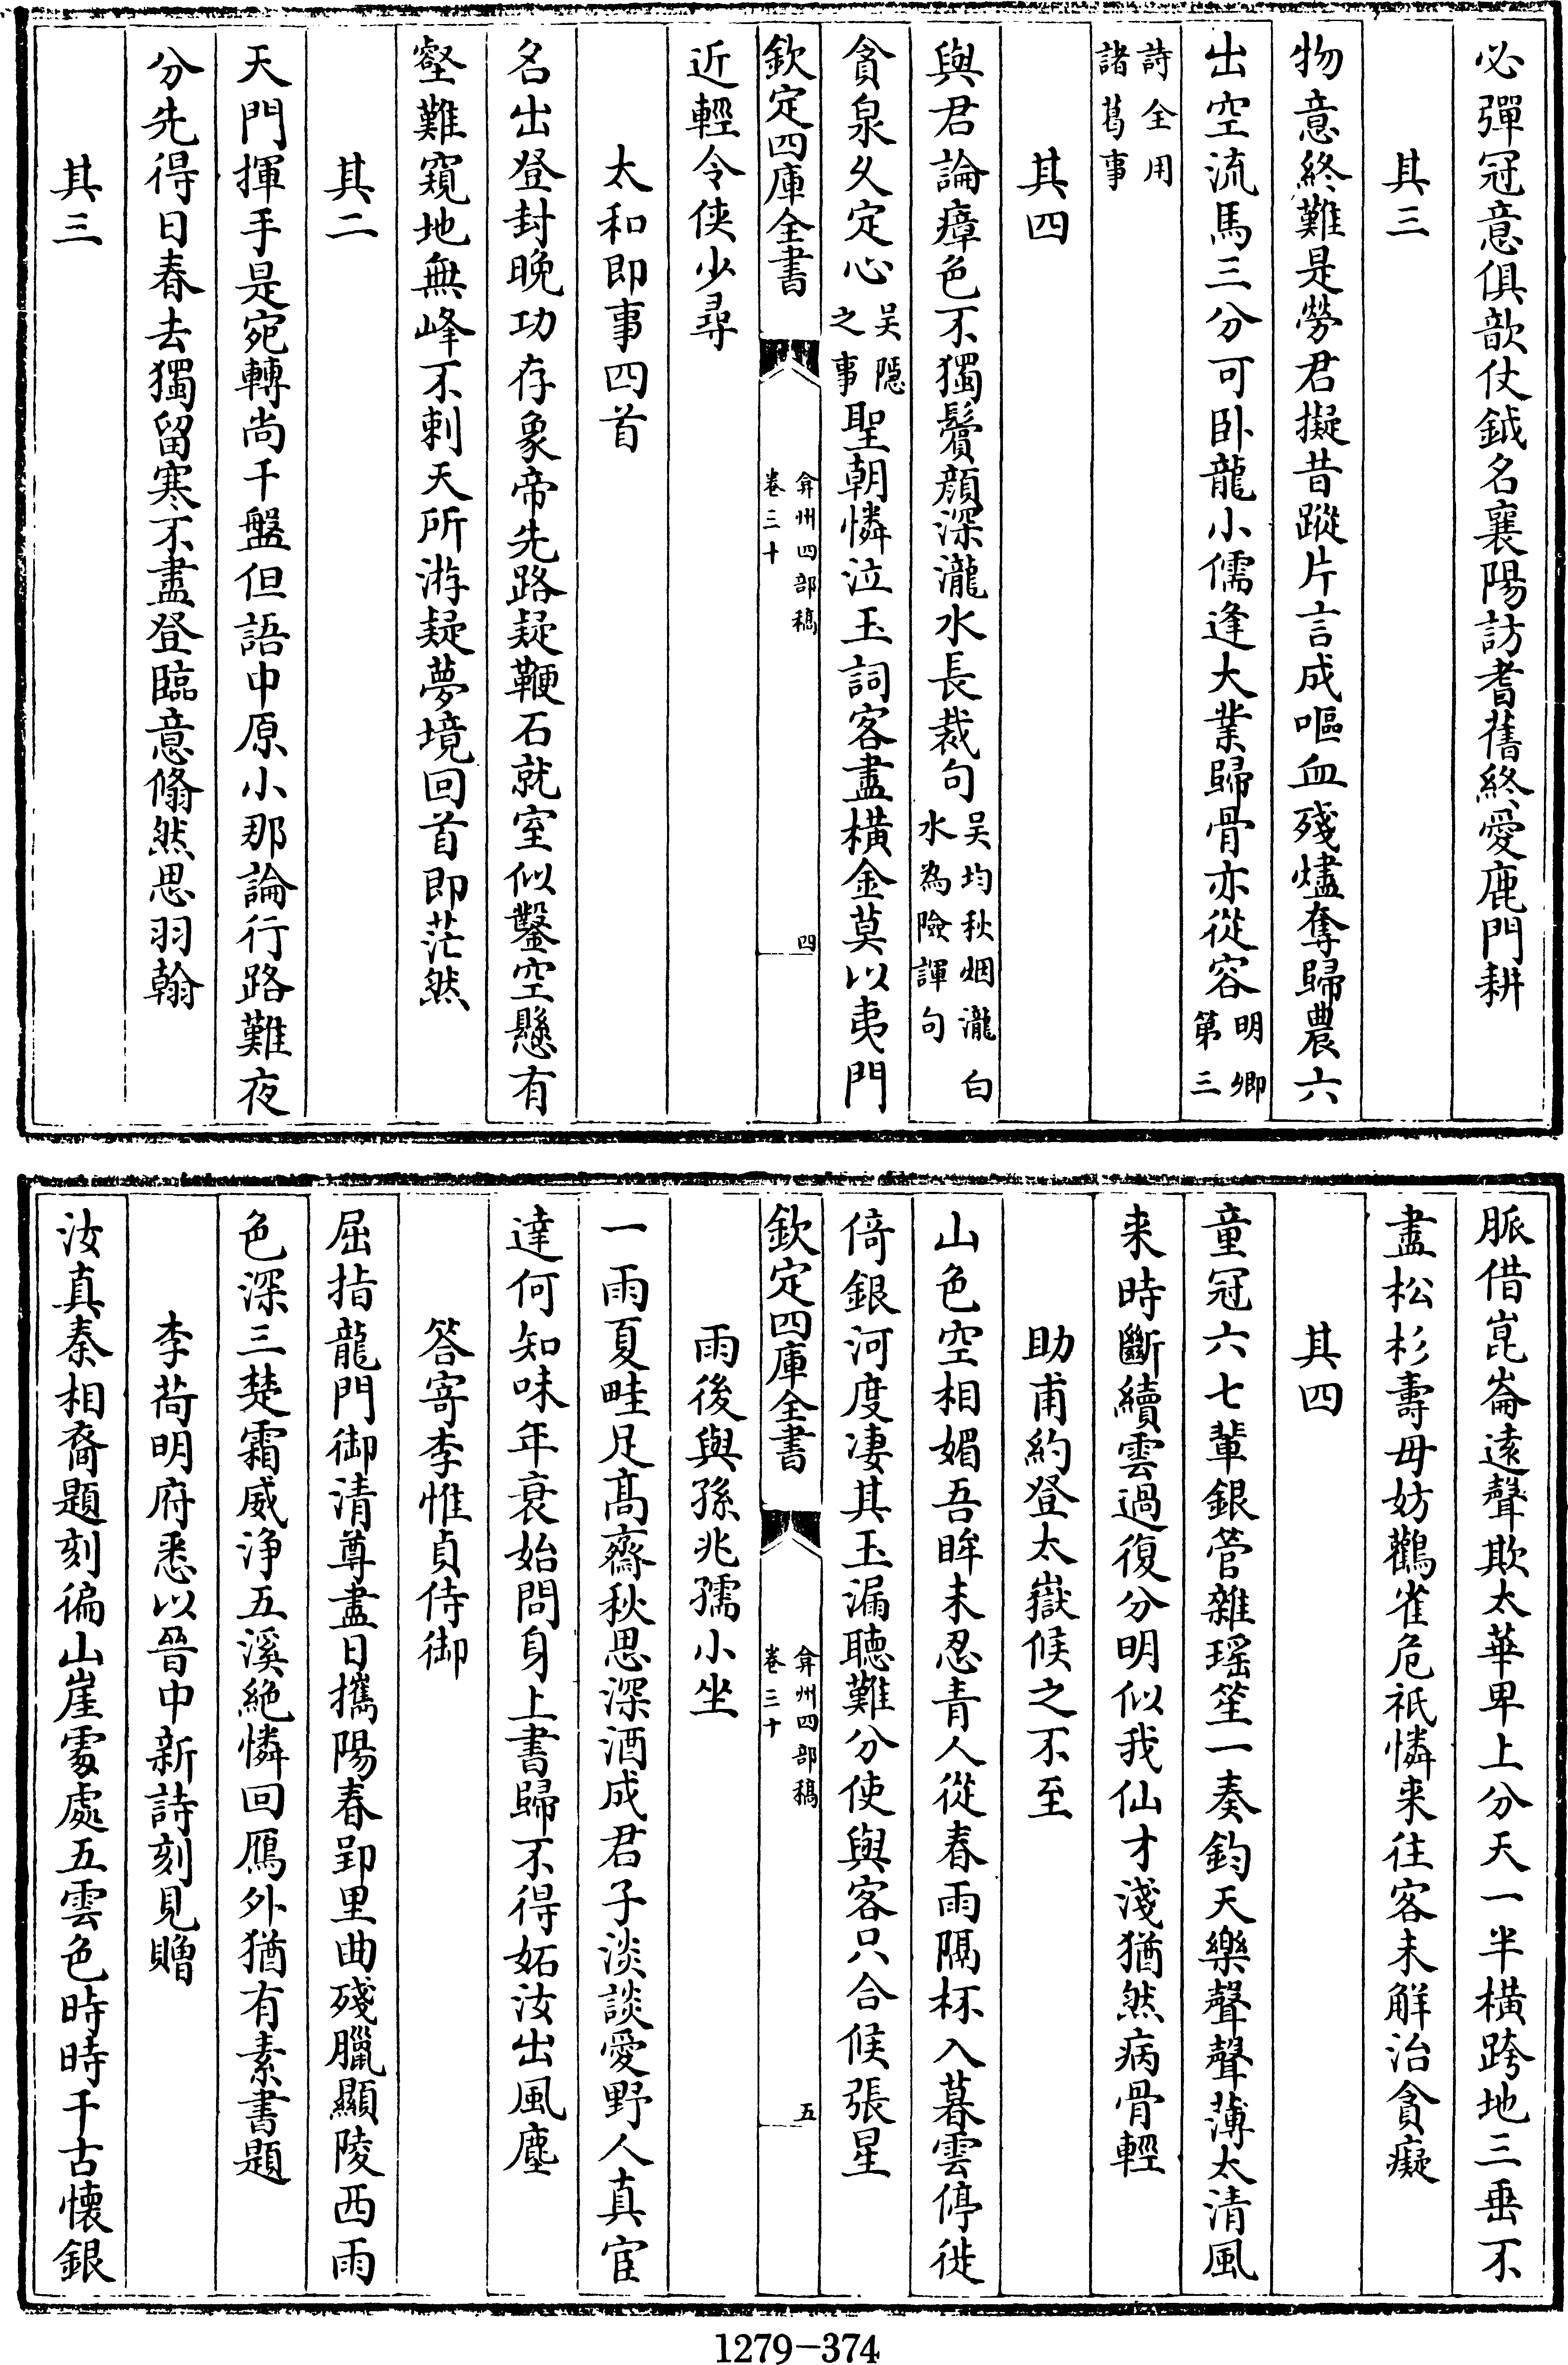 必彈冠意俱歆仗鉞名襄陽訪耆舊終愛鹿門耕
其三
物意終難是勞君擬昔蹤片言成嘔血殘燼奪歸農六
出空流馬三分可卧龍小儒逢大業歸骨亦從容明卿第三
詩全用諸葛事
其四
與君論瘴色不獨鬢顔深瀧水長裁句吴均秋烟瀧白水為險諢句
貪泉久定心吴隠之事聖朝憐泣玉詞客盡横金莫以夷門
欽定四庫全書
弇州四部稿
卷三十
四
近輕令俠少尋
太和即事四首
名出登封晚功存象帝先路疑鞭石就室似鑿空懸有
壑難窺地無峰不刺天所游疑夢境回首即茫然
其二
天門揮手是宛轉尚千盤但語中原小那論行路難夜
分先得日春去獨留寒不盡登臨意翛然思羽翰
其三
脈借崑崙逺聲欺太華卑上分天一半横跨地三垂不
盡松杉壽毋妨鸛雀危祇憐来往客未解治貪癡
其四
童冠六七輩銀管雜瑶笙一奏鈞天樂聲聲薄太清風
来時斷續雲過復分明似我仙才淺猶然病骨輕
助甫約登太嶽候之不至
山色空相媚吾眸未忍青人從春雨隔杯入暮雲停徙
倚銀河度凄其玉漏聽難分使與客只合候張星
欽定四庫全書
弇州四部稿
卷三十
五
雨後與孫兆孺小坐
一雨夏畦足髙齋秋思深酒成君子淡談愛野人真宦
達何知味年衰始問身上書歸不得妬汝出風塵
答寄李惟貞侍御
屈指龍門御清尊盡日攜陽春郢里曲殘臘顯陵西雨
色深三楚霜威浄五溪絶憐回鴈外猶有素書題
李荷明府悉以晉中新詩刻見贈
汝真秦相裔題刻徧山崖處處五雲色時時千古懷銀
1279-374